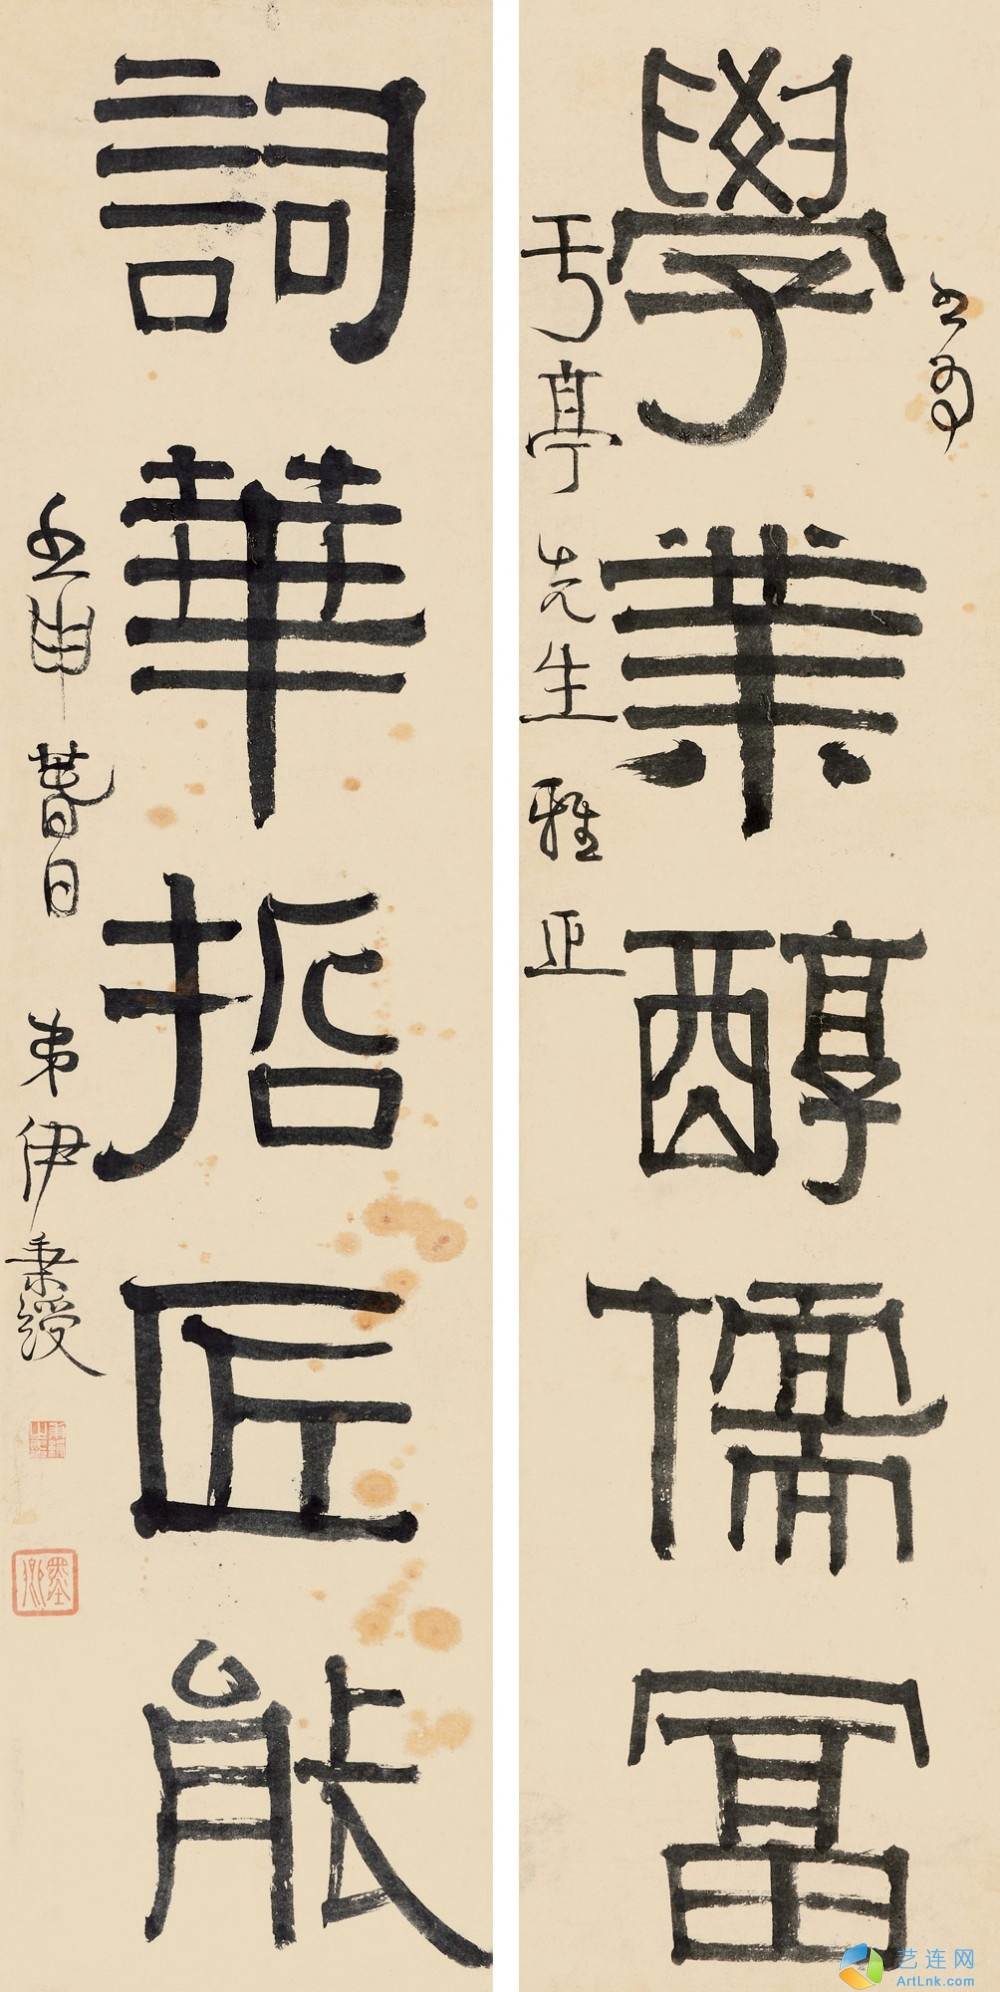 學業醇儒富
亭先生雅正
詞華哲匠能
壬申春日 弟伊秉綬
墨卿
艺连网
ArtLnk.com